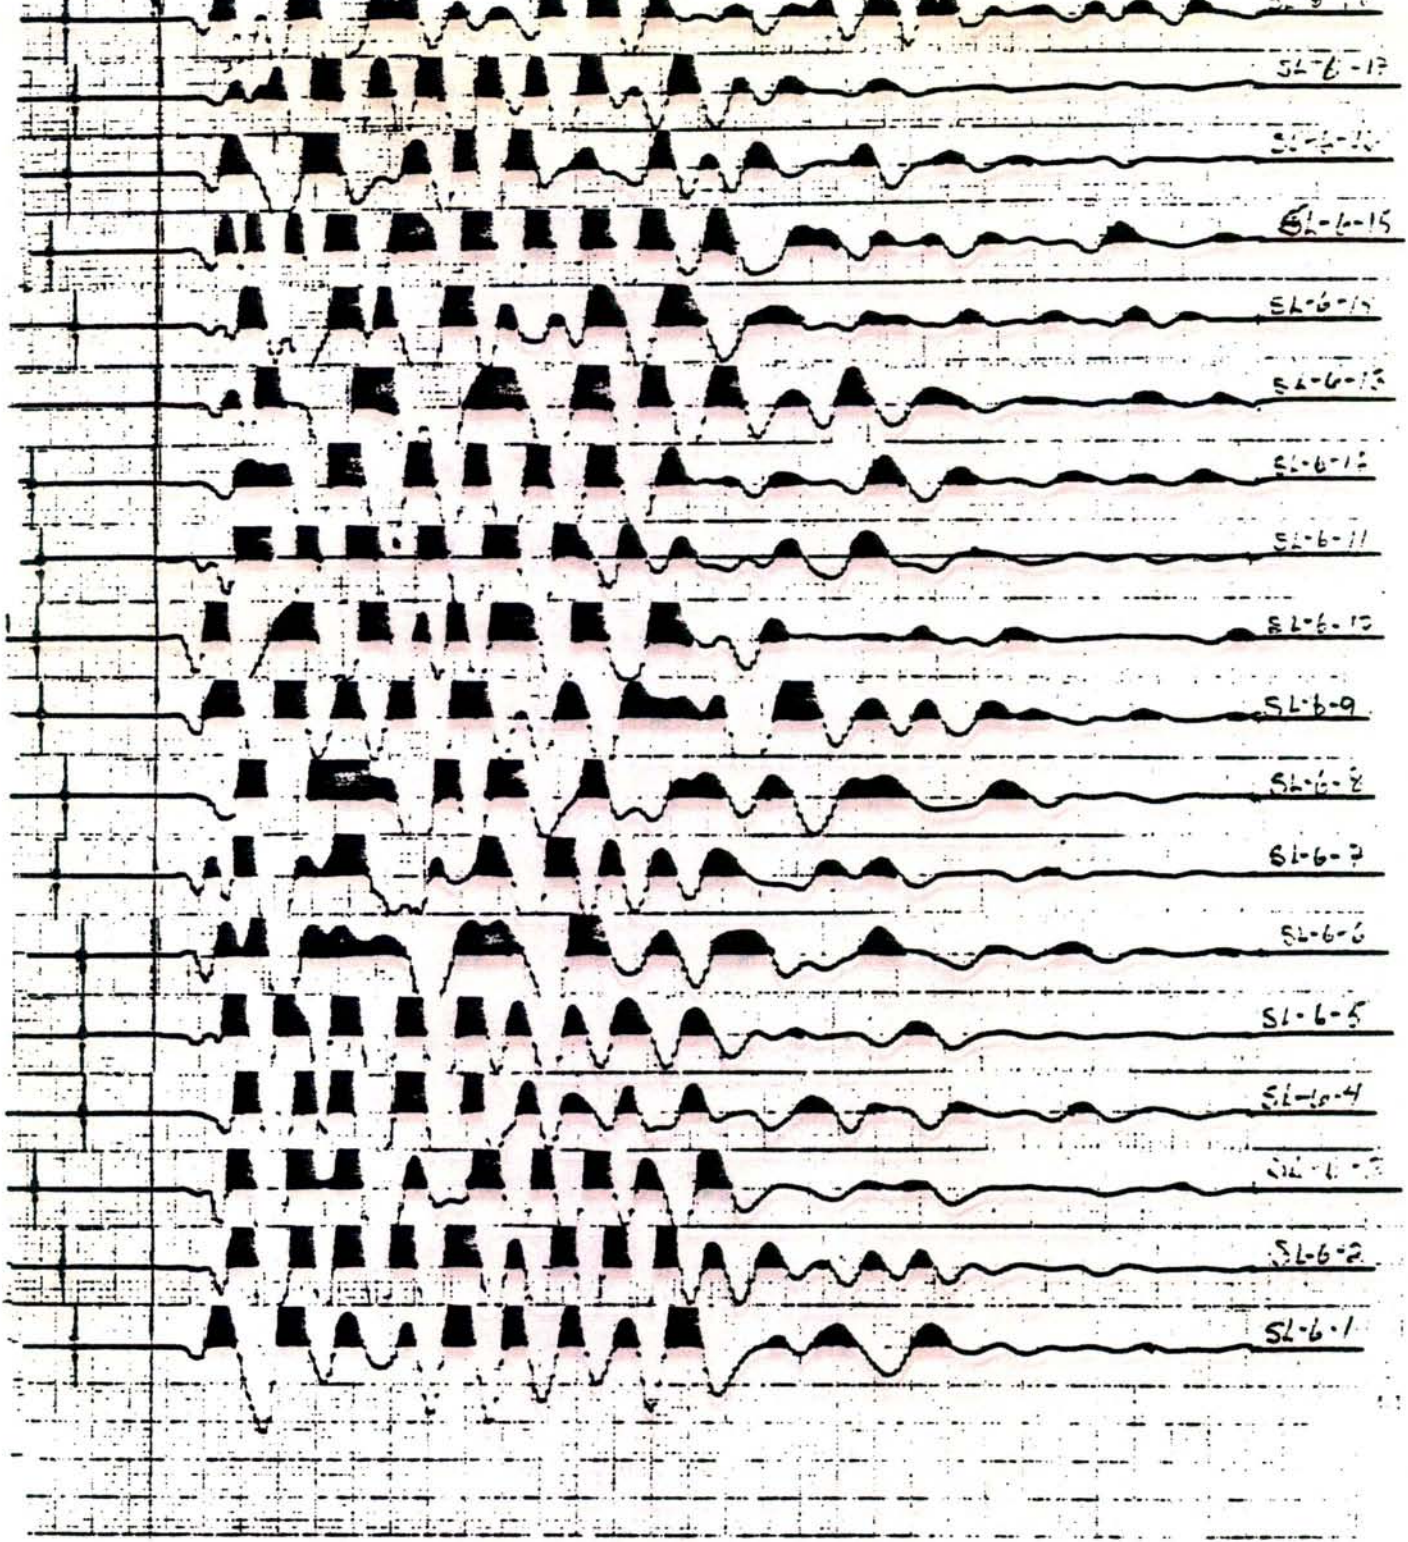 SL-6-15
SL-6-14
SL-6-13
SL-6-12
SL-6-11
SL-6-10
SL-6-9
SL-6-8
SL-6-7
SL-6-6
SL-6-5
SL-6-4
SL-6-2
SL-6-1